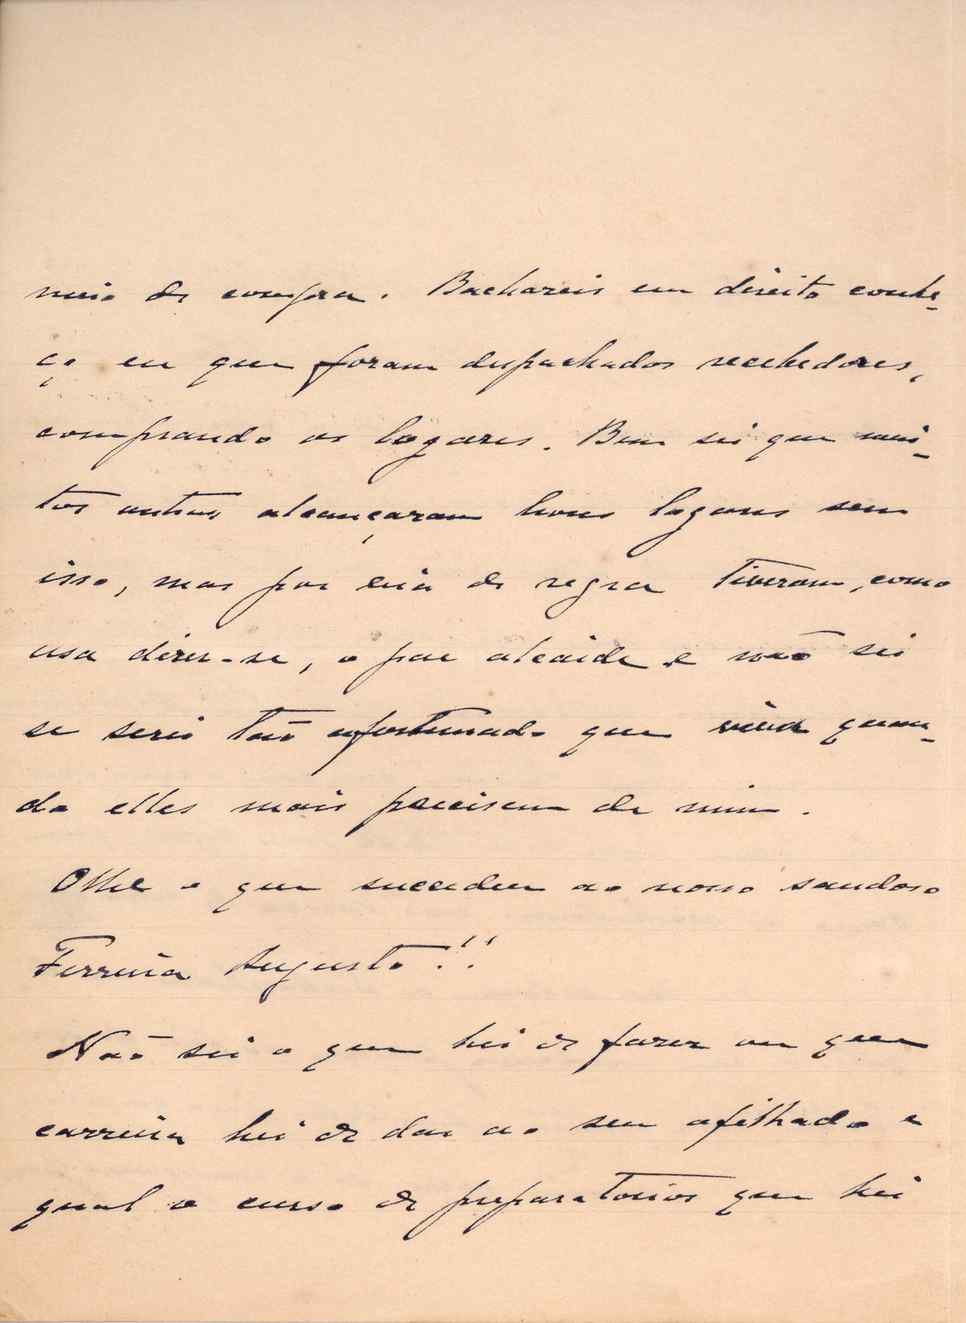 meio de compra. Bachareis em direito conhe-
ço eu que foram despachados recebedores,
comprando os logares. Bem sei que mui-
tos outros alcançaram bons logares sem
isso, mas por via de regra tiveram, como
usa dizer-se, o pae alcaide e não sei
se serei tão afortunado que viva quan-
do elles mais precisem de mim.
Olhe o que succedeu ao nosso saudoso
Ferreira Augusto!!
Não sei o que hei de fazer ou que
carreira hei de dar ao seu afilhado e
qual o curso de preparatorios que hei